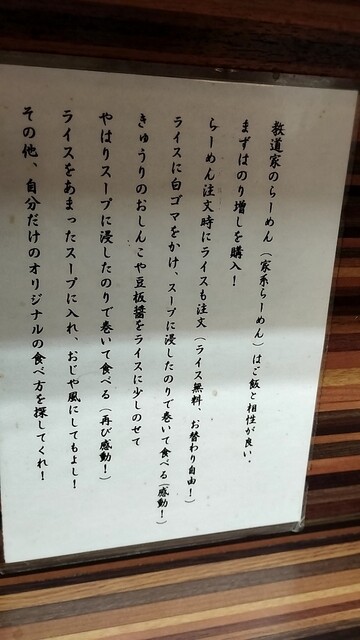 教道家のらーめん(家系らーめん)はご飯と相性が良い。
まずはのり増しを購入!
らーめん注文時にライスも注文(ライス無料、お替わり自由!)
ライスに白ゴマをかけ、スープに浸したのりで巻いて食べる(感動!)
きゅうりのおしんこや豆板醤をライスに少しのせて
やはりスープに浸したのりで巻いて食べる(再び感動!)
ライスをあまったスープに入れ、おじや風にしてもよし!
その他、自分だけのオリジナルの食べ方を探してくれ!